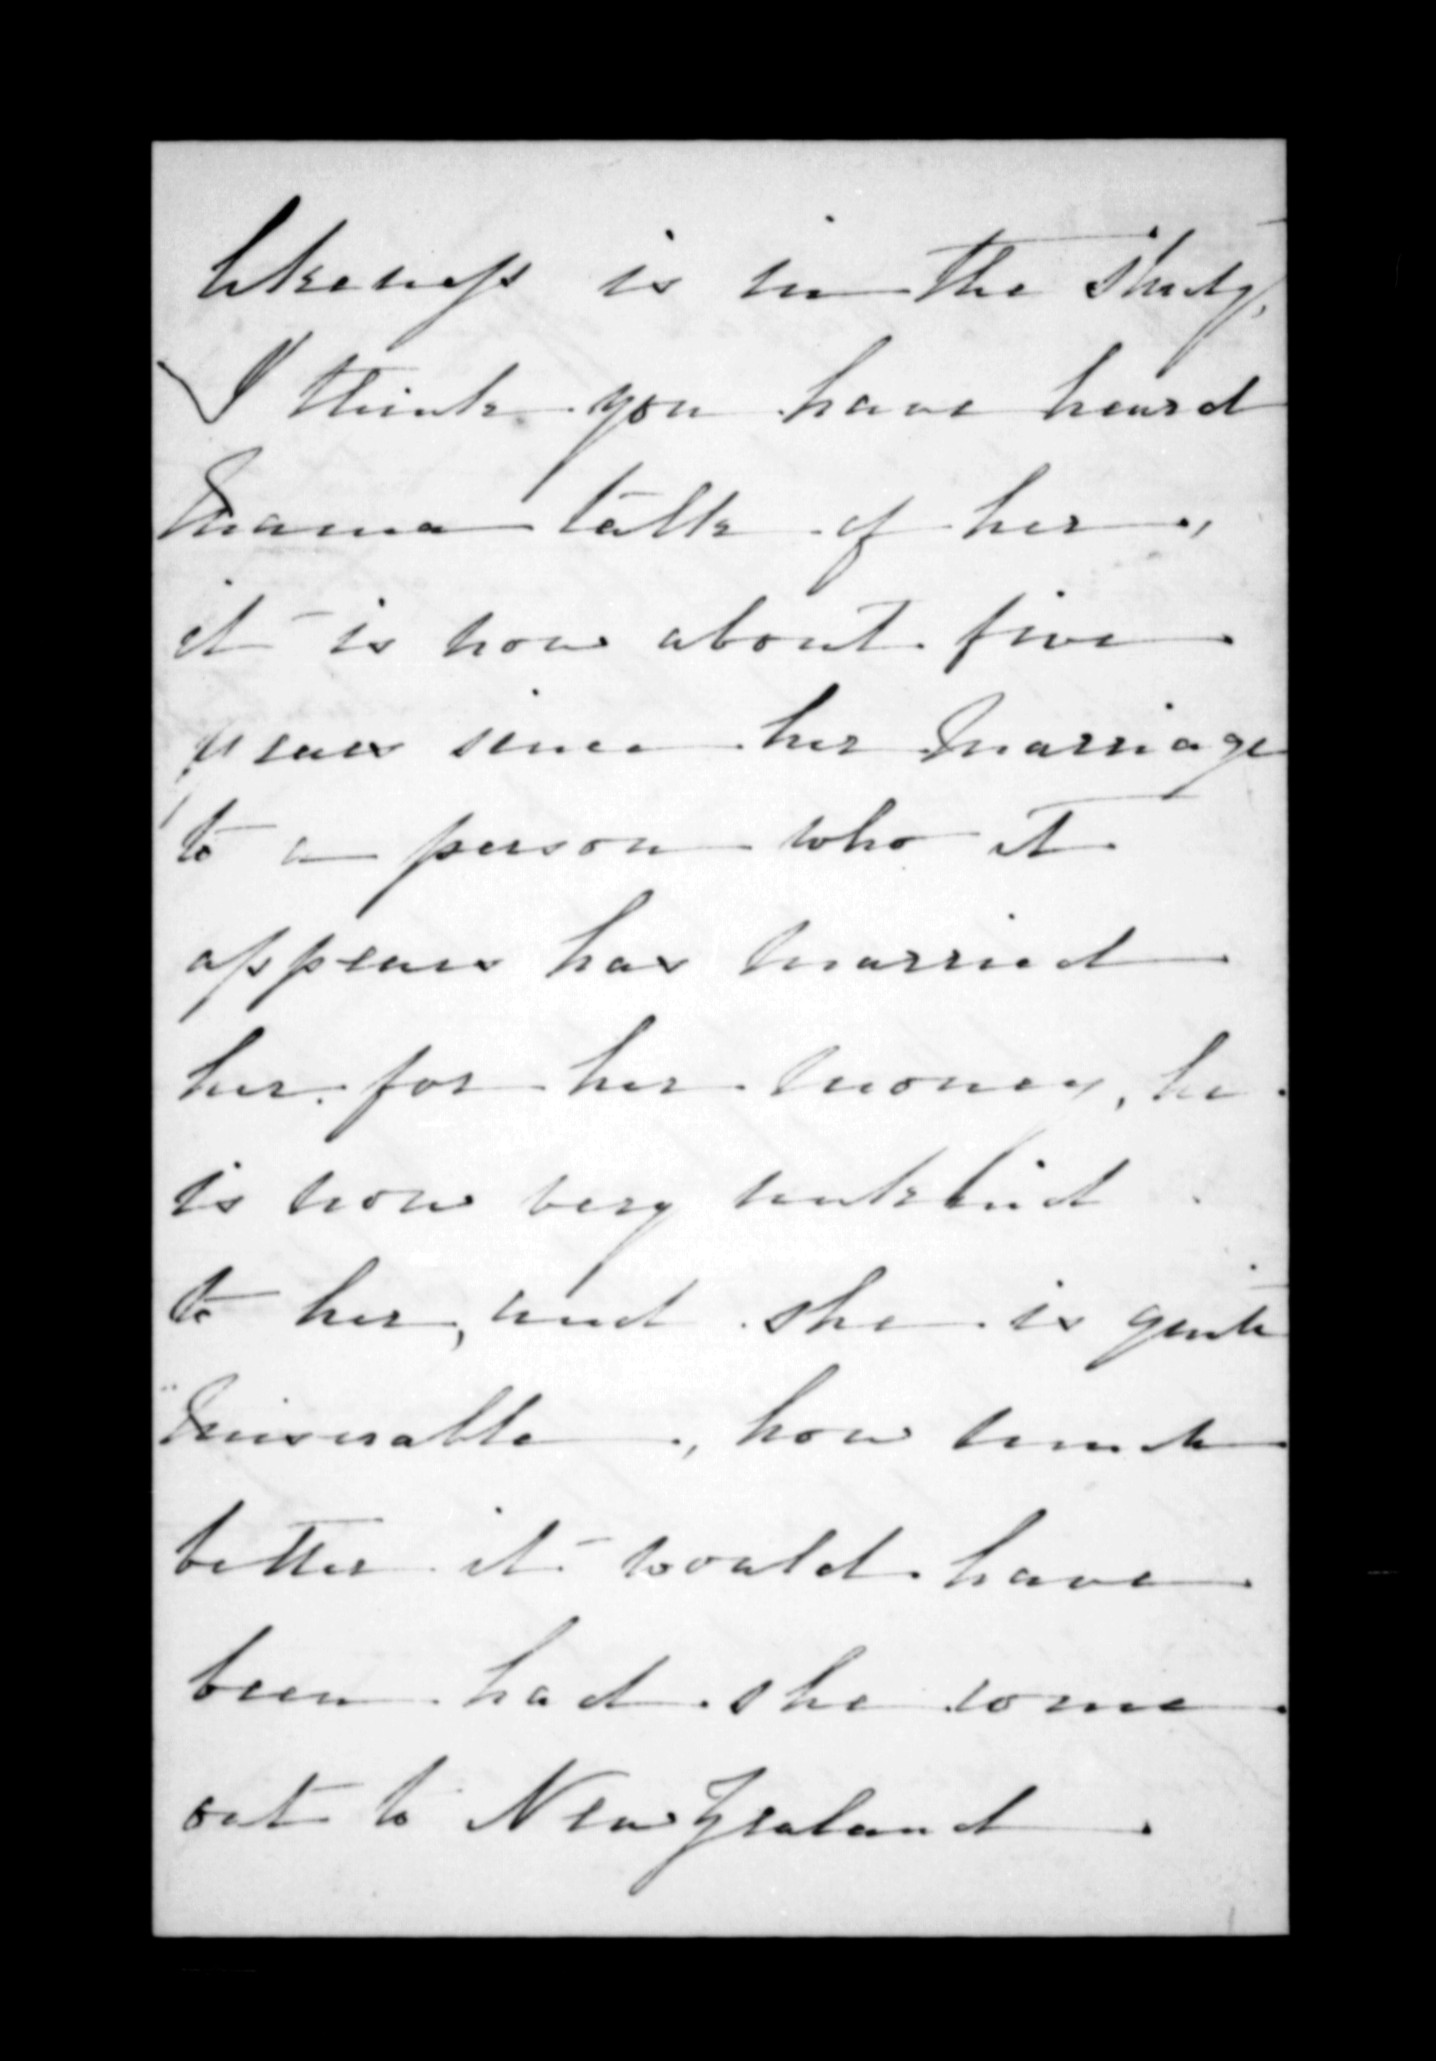 likeness is in the study,
I think you have heard
Mama talk of her,
it is now about five
years since her Marriage
to a person who it
appears has married
her for her money, he
is now very unkind
to her, and she is quite
Miserable, how much
better it would have
been had she come
out to New Zealand.